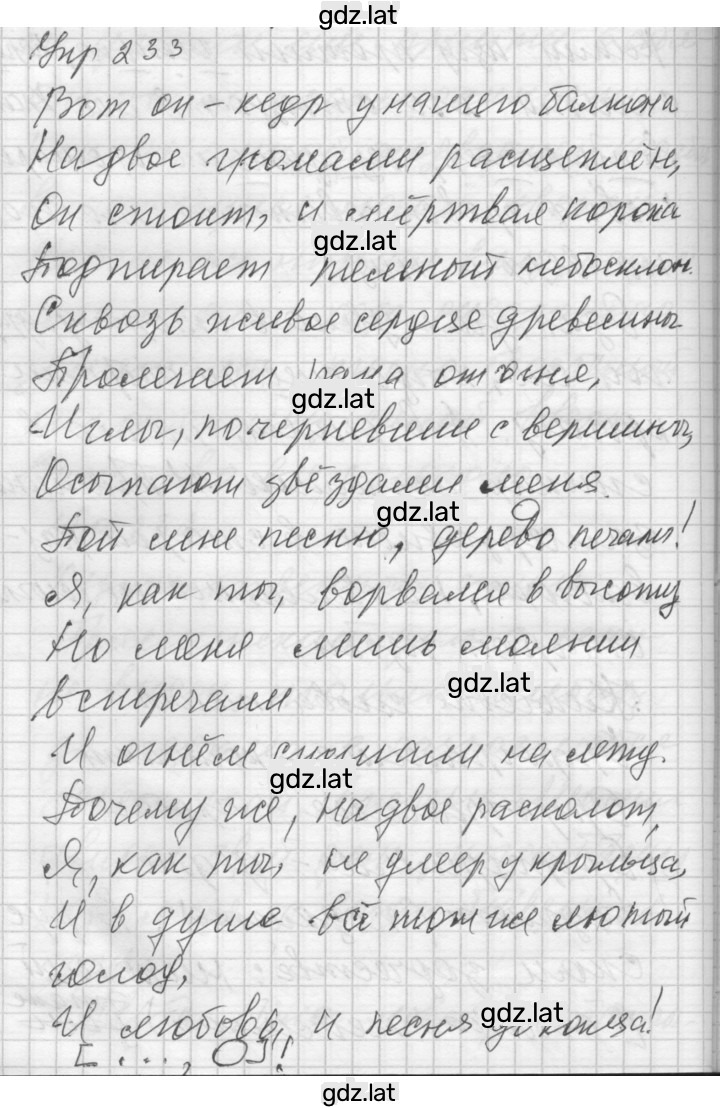 gdz.lat
Упр 233
Вот он - кедр у нашего балкона
Надвое громами расщеплён,
Он стоит, и мёртвая корона
gdz.lat
Подпирает темный небосклон.
Сквозь живое сердце древесины
Пролегает рана от огня,
gdz.lat
Иглы, почерневшие с вершины,
Осыпают звёздами меня.
gdz.lat
Пой мне песню, дерево печали!
Я, как ты, ворвался в высоту
Но меня лишь молнии
gdz.lat
встречали
И огнём сжигали на лету.
gdz.lat
Почему же, надвое расколот,
Я, как ты, не умер у крыльца,
И в душе всё тот же лютый
голод,
gdz.lat
И любовь, и песня до конца!
[..., О]!
gdz.lat